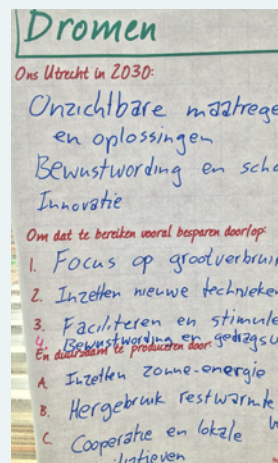 Dromen
Ons Utrecht in 2030:
Onzichtbare maatrege
en oplossingen
Bewustwording en scho
Innovatie
Om dat te bereiken vooral besparen door/op:
1. Focus op grootverbrui
2. Inzetten nieuwe technieken
3. Faciliteren en stimule
4. Bewustwording en gedragsv
En duurzaam te produceren door:
A. Inzetten zonne-energie
B. Hergebruik restwarmte
C. Coöperatie en lokale
itiatieven